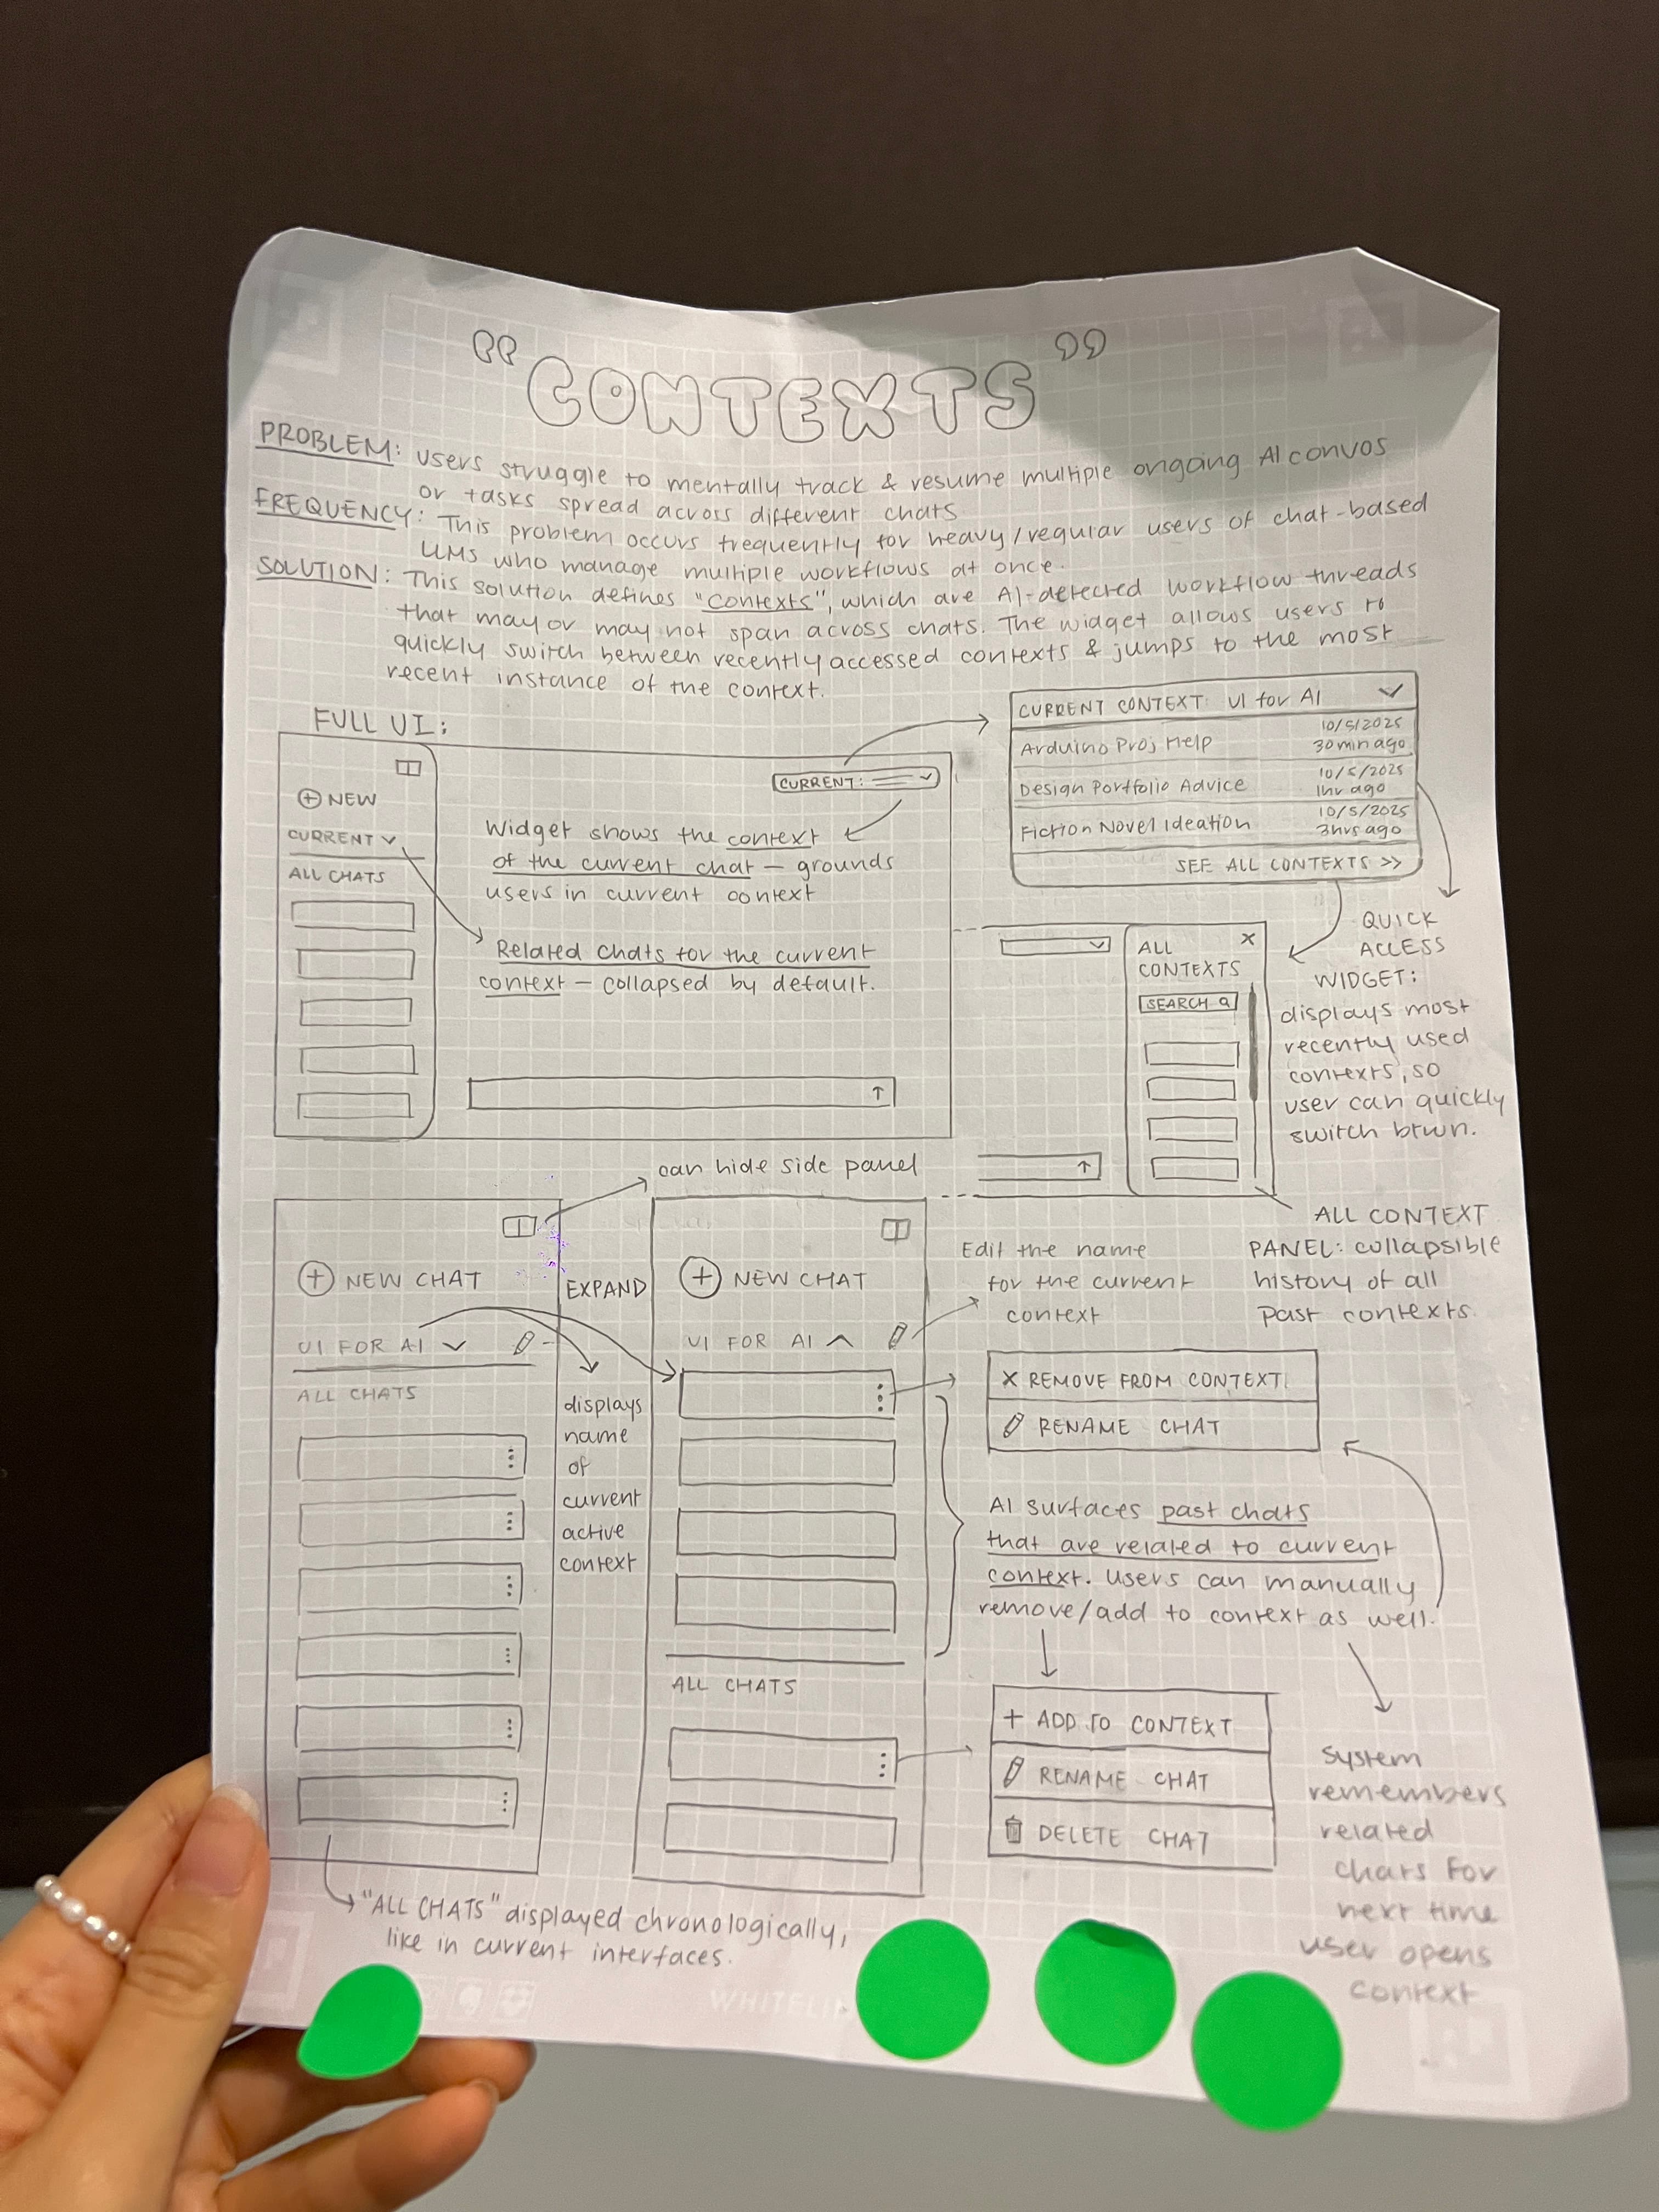 "CONTEXTS"
PROBLEM: users struggle to mentally track & resume multiple ongoing AI convos
or tasks spread across different chats
FREQUENCY: This problem occurs frequently for heavy/regular users of chat-based
LLMs who manage multiple workflows at once.
SOLUTION: This solution defines "contexts", which are AI-detected workflow threads
that may or may not span across chats. The widget allows users to
quickly switch between recently accessed contexts & jumps to the most
recent instance of the context.
FULL UI:
+ NEW
CURRENT
ALL CHATS
CURRENT:
Widget shows the context
of the current chat — grounds
users in current context
Related chats for the current
context — collapsed by default.
↑
CURRENT CONTEXT: UI for AI
Arduino Proj Help
10/5/2025
30min ago
Design Portfolio Advice
10/5/2025
1hr ago
Fiction Novel Ideation
10/5/2025
3hrs ago
SEE ALL CONTEXTS >>
QUICK
ACCESS
WIDGET:
displays most
recently used
contexts, so
user can quickly
switch btwn.
ALL
CONTEXTS
X
SEARCH
↑
ALL CONTEXT
PANEL: collapsible
history of all
past contexts.
can hide side panel
+ NEW CHAT
UI FOR AI
ALL CHATS
EXPAND
displays
name
of
current
active
context
+ NEW CHAT
UI FOR AI
Edit the name
for the current
context
X REMOVE FROM CONTEXT
RENAME CHAT
AI surfaces past chats
that are related to current
context. Users can manually
remove/add to context as well.
ALL CHATS
+ ADD TO CONTEXT
RENAME CHAT
DELETE CHAT
System
remembers
related
chats for
next time
user opens
context
"ALL CHATS" displayed chronologically,
like in current interfaces.